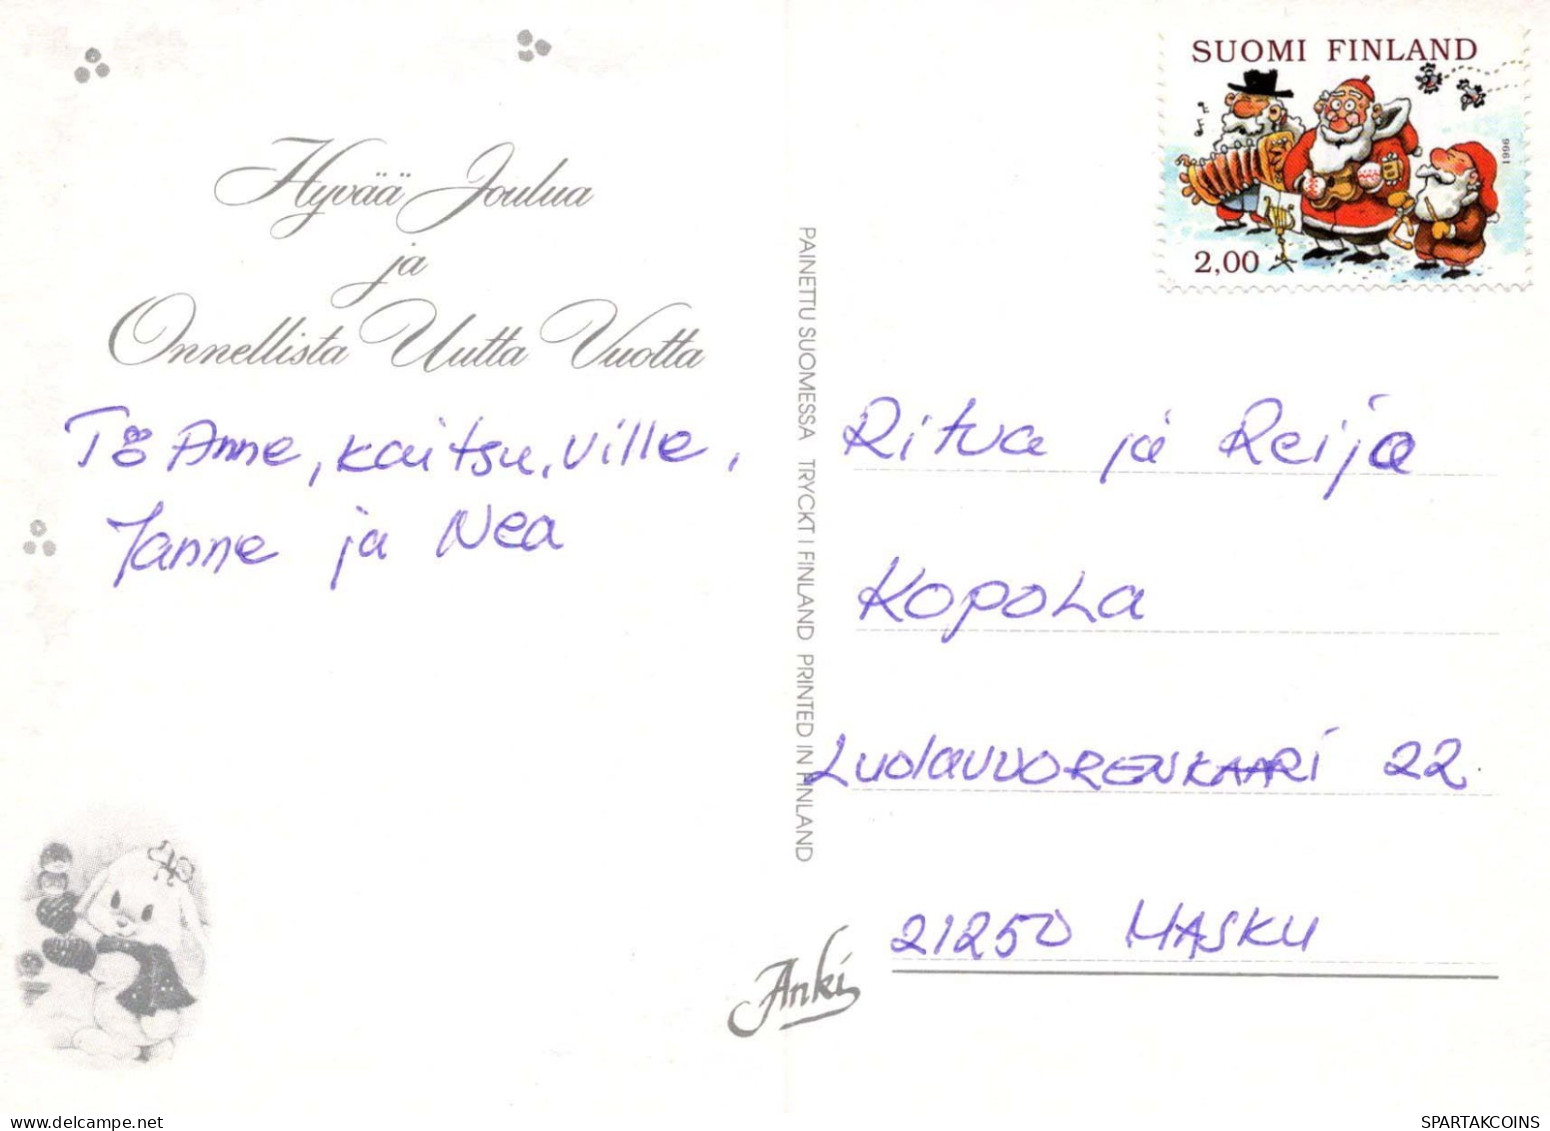 Hyvää Joulua
ja
Onnellista Uutta Vuotta
Tö Anne, Kaitsu, Ville,
Janne ja Nea
PAINETTU SUOMESSA TRYCKT I FINLAND PRINTED IN FINLAND
SUOMI FINLAND
1996
2,00
Ritva ja Reija
KOPOLA
LUOLAVUORENKAARI 22
21250 MASKU
Anki
delcampe.net
SPARTAKCOINS